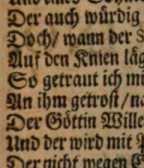 Der auch würdig
Doch/ wann der
Auf den Knien
So getraut ich mi
An ihm getrost/
Der Göttin Wille
Und der wird mit
Der nicht wegen